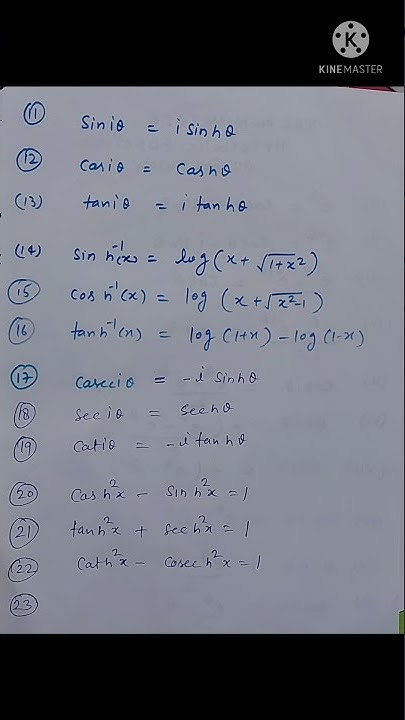 K
KINEMASTER
(11) Siniθ = i sinhθ
(12) Cosiθ = Coshθ
(13) taniθ = i tanhθ
(14) sin h⁻¹(x) = log(x + √1+x²)
(15) cosh⁻¹(x) = log (x+√x²-1)
(16) tanh⁻¹(x) = log(1+x) - log(1-x)
(17) Coseciθ = -i sinhθ
(18) Sec iθ = sechθ
(19) Cotiθ = -i tanhθ
(20) Cosh²x - sinh²x = 1
(21) tanh²x + sech²x = 1
(22) Coth²x - Cosech²x = 1
(23)